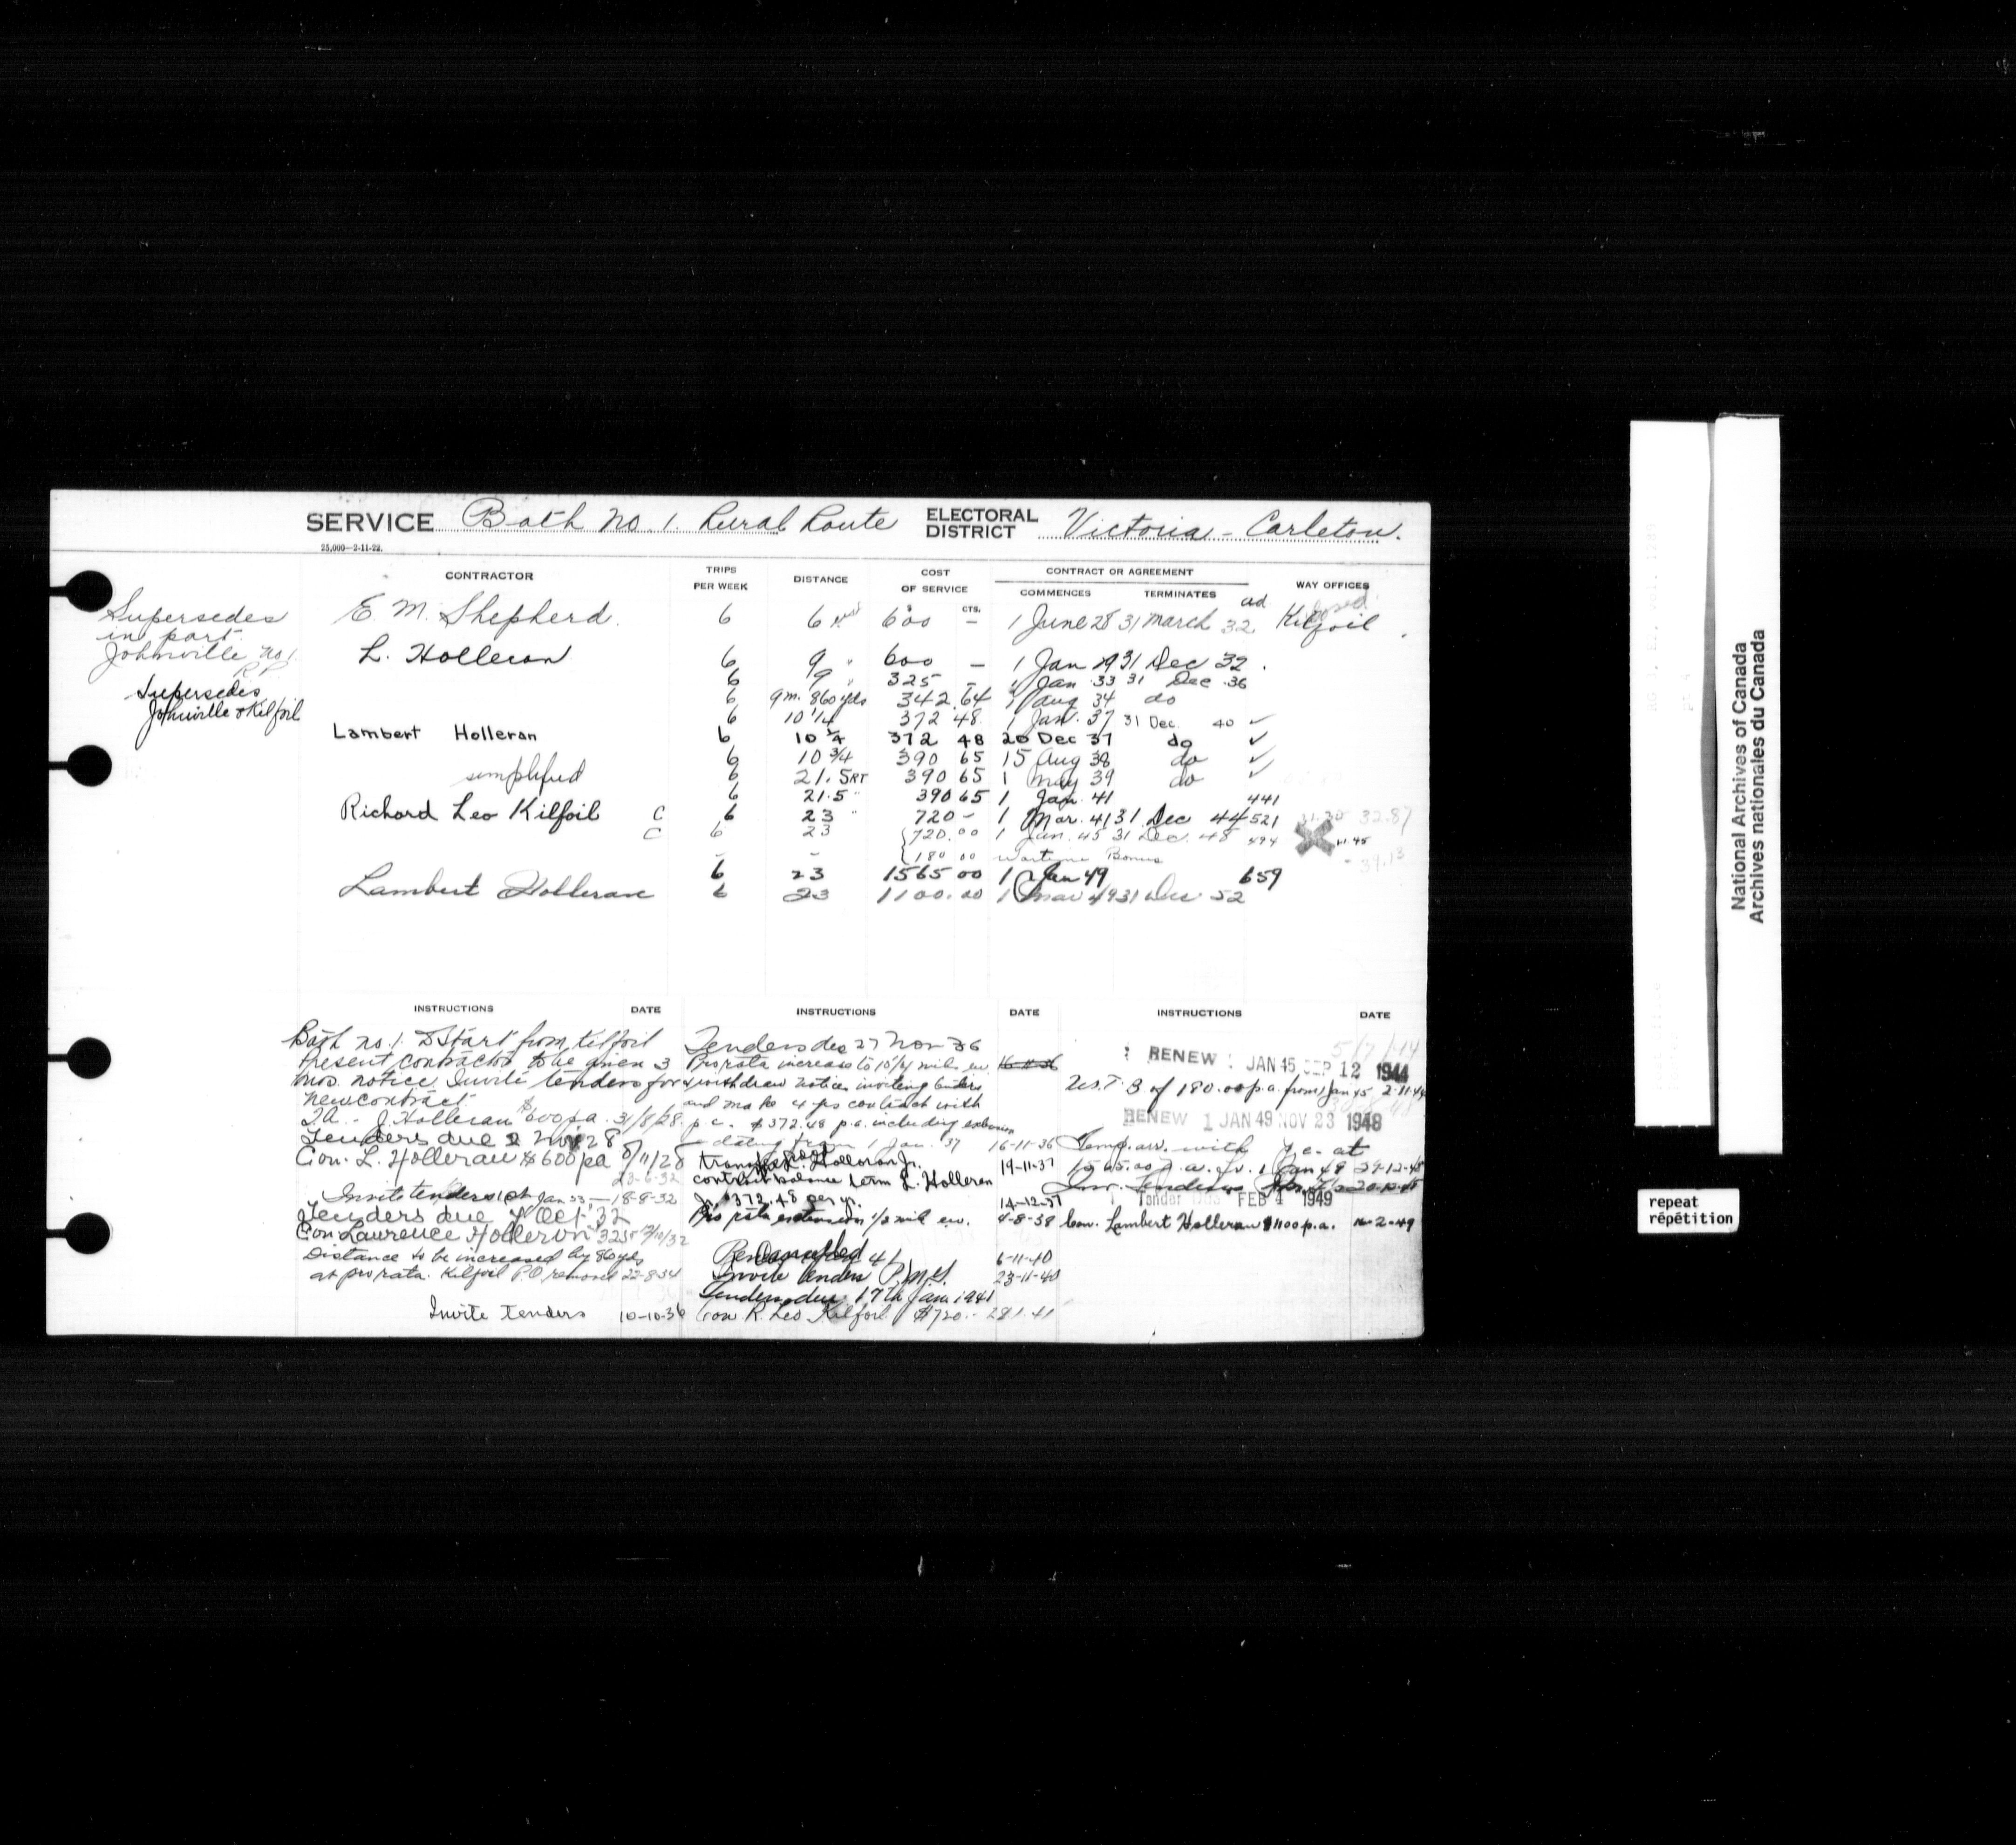 SERVICE Bath No. 1. Rural Route ELECTORAL DISTRICT Victoria - Carleton.
25,000—2-11-22.
CONTRACTOR TRIPS PER WEEK DISTANCE COST OF SERVICE CONTRACT OR AGREEMENT WAY OFFICES
COMMENCES TERMINATES
$ CTS.
Supersedes in part Johnville No 1. R.R.
E. M. Shepherd. 6 6 600 — 1 June 28 31 March 32 Kilfoil closed
L. Holleran 6 9 " 600 — 1 Jan 29 31 Dec 32.
6 9 " 325 — 1 Jan 33 31 Dec 36
Supersedes Johnville & Kilfoil
6 9m. 860 yds 342.64 1 Aug 34 do
6 10 1/4 372 48 1 Jan. 37 31 Dec 40 ✓
Lambert Holleran 6 10 1/4 372 48 20 Dec 37 do ✓
6 10 3/4 390 65 15 Aug 38 do ✓
simplified 6 21.5 RT 390 65 1 May 39 do ✓
6 21.5 " 390 65 1 Jan 41 441
Richard Leo Kilfoil C 6 23 " 720 — 1 Mar. 41 31 Dec 44 521 32.87
C 6 23 720.00 1 Jan. 45 31 Dec. 48 494
- - 180 00 Wartime Bonus - 39.13
6 23 1565 00 1 Jan 49 659
Lambert Holleran 6 23 1100.00 1 Mar 49 31 Dec 52
INSTRUCTIONS DATE INSTRUCTIONS DATE INSTRUCTIONS DATE
Bath No. 1. to start from Kilfoil
Present contractor to be given 3
mos. notice. Invite tenders for
new contract
T.A. - J. Holleran $600 pa. 31/8/28
Tenders due 2 Nov 28
Con. L. Holleran $600 pa 8/11/28
23-6-32
Invite tenders 1 Jan 33 — 18-8-32
Tenders due 4 Oct 32
Con. Laurence Holleran 325 /10/32
Distance to be increased by 860 yds
at pro rata. Kilfoil P.O removed 22-8-34
Invite tenders 10-10-36
Tenders due 27 Nov 36
Pro rata increase to 10 1/4 mile 16-11-36
withdraw notices inviting tenders
and make 4 yrs contract with
p.c. $372.48 p.a. including extension
dating from 1 Jan. '37 16-11-36
transfer L. Holleran Jr. 19-11-37
contract balance term L. Holleran
Jr. $372.48 per yr. 14-12-37
Pro rata extension 1/2 mile 4-8-38
Cancelled 41 6-11-40
Invite tenders P.M.G. 23-11-40
Tenders due 17th Jan. 1941
Con R. Leo Kilfoil $720.- 28.1.41
5/7/44
RENEW 1 JAN 45 SEP 12 1944
W.T.B of 180.00 p.a. from 1 Jan 45 2-11-44
RENEW 1 JAN 49 NOV 23 1948
Temp. arr. with p.c. at
1565.00 p.a. fr. 1 Jan 49 29-12-48
Inv. Tenders
Tender Due FEB 4 1949
Con. Lambert Holleran $1100 p.a. 16-2-49
National Archives of Canada
Archives nationales du Canada
repeat
répétition